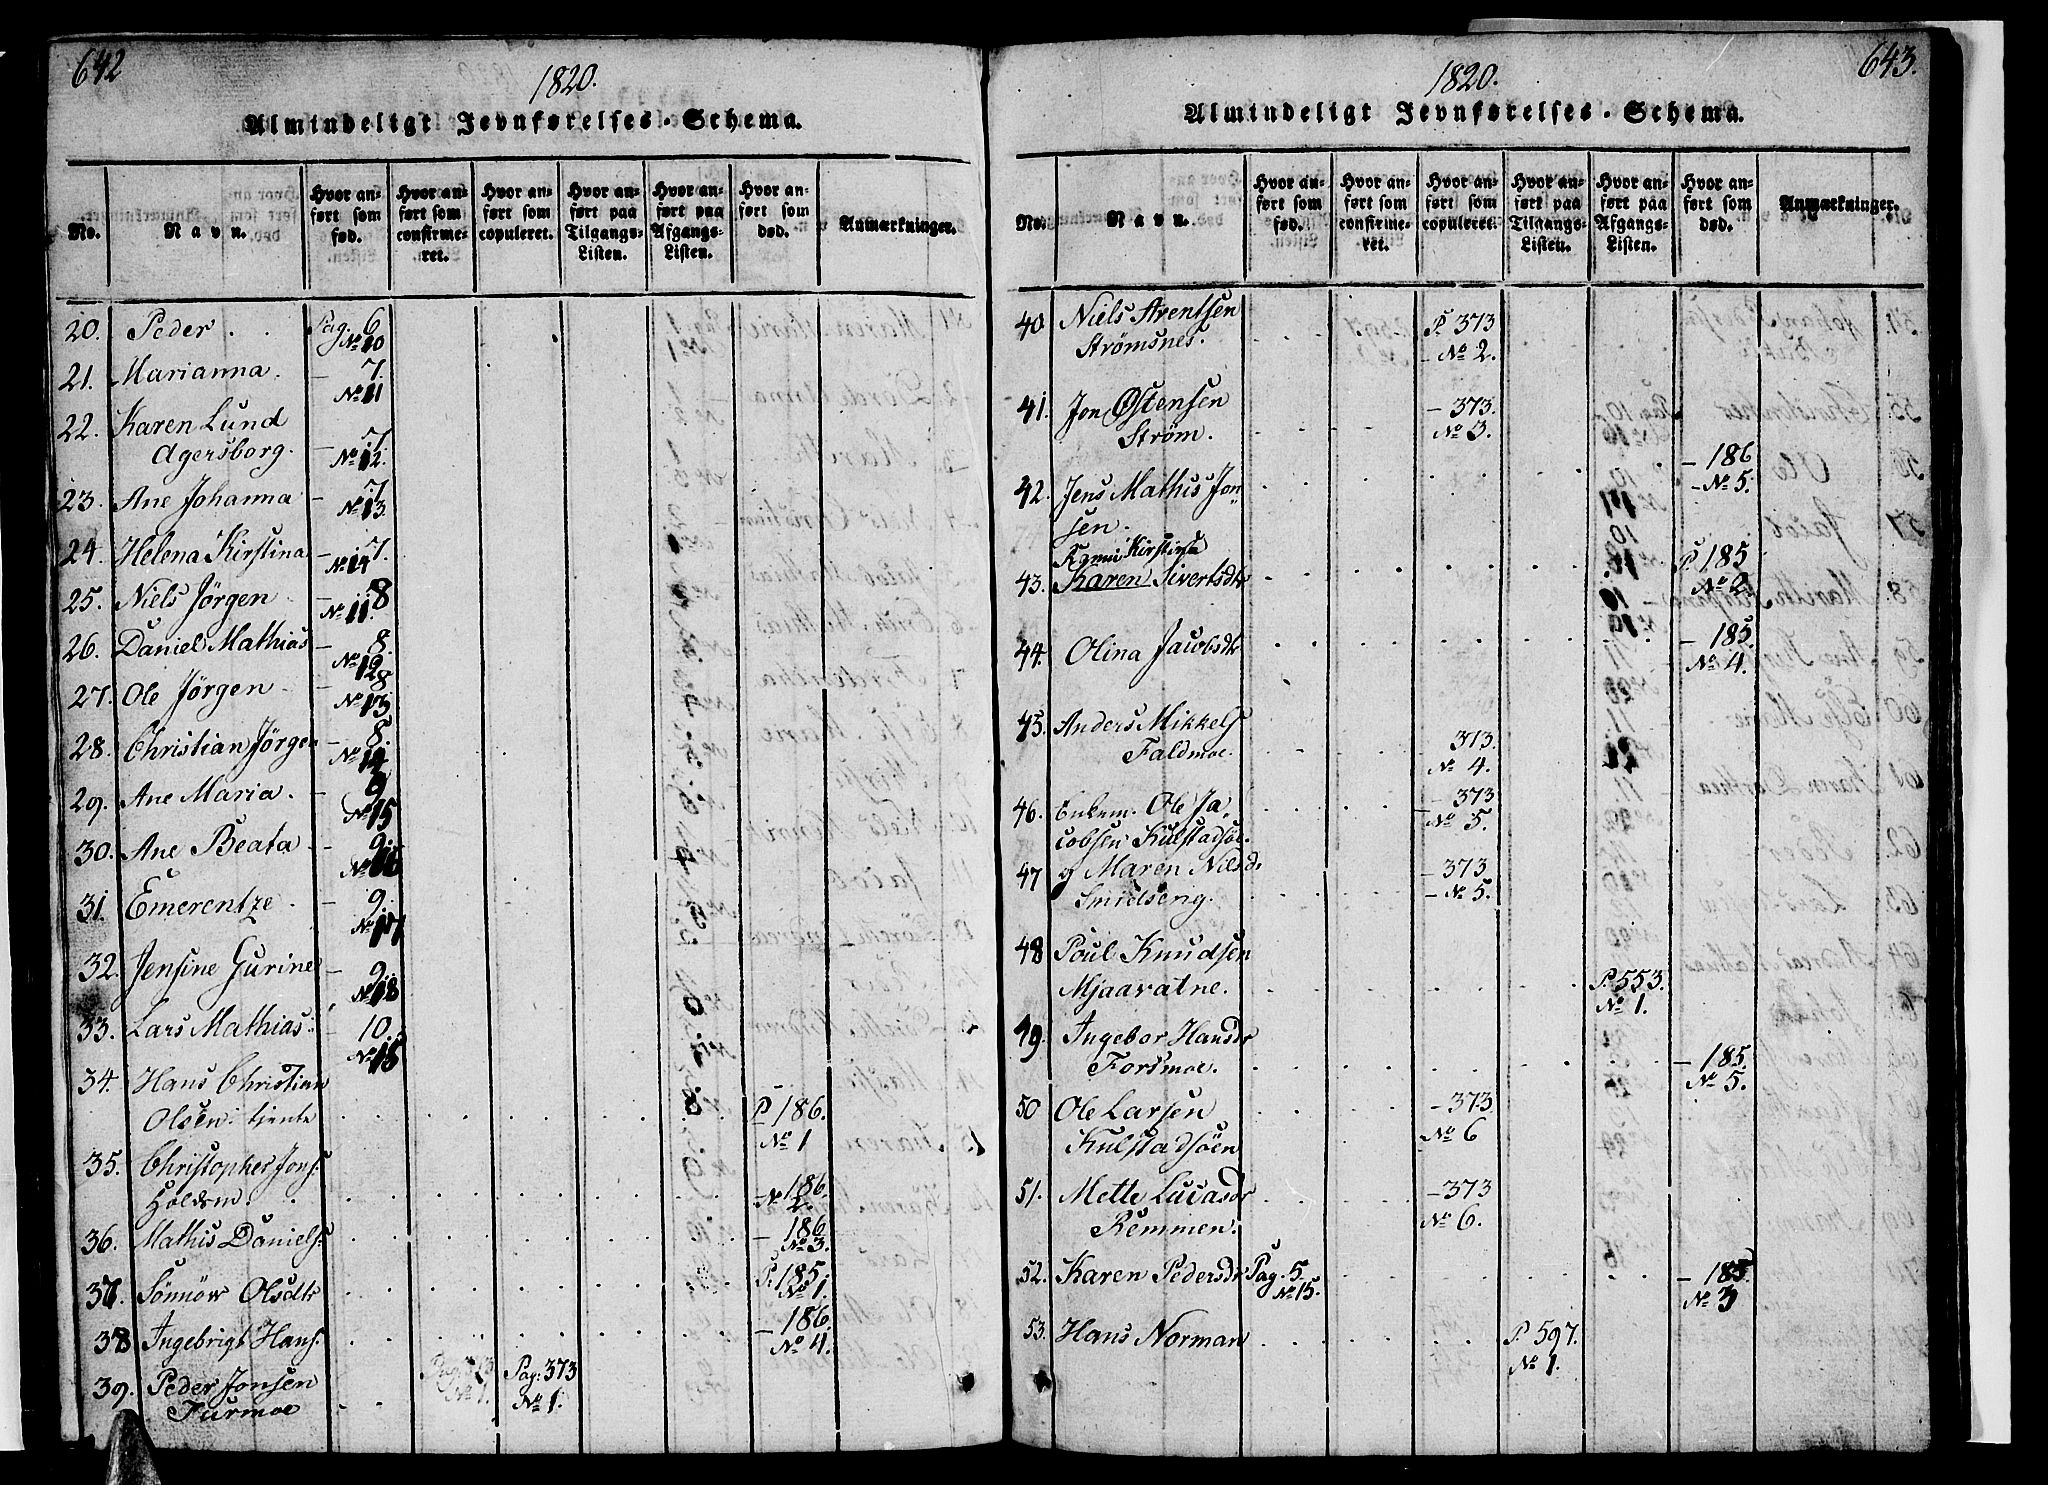 642
1820.
Almindeligt Jevnførelses-Schema.
No.
Navn.
Hvor an-
ført som
fød.
Hvor an-
ført som
confirme-
ret.
Hvor an-
ført som
copuleret.
Hvor an-
ført paa
Tilgangs-
Listen.
Hvor an-
ført paa
Afgangs-
Listen.
Hvor an-
ført som
død.
Anmærkninger.
20. Peder . . Pag. 6
No 10
21. Marianna. – 7.
No 11
22. Karen Lund
Agersborg. – 7
No 12.
23. Ane Johanna – 7
No 13.
24. Helena Kirstina – 7.
No 14
25. Niels Jørgen – 8
No 11.
26. Daniel Mathias – 8.
No 12
27. Ole Jørgen – 8
No 13
28. Christian Jørgen – 8.
No 14
29. Ane Maria. – 9
No 15
30. Ane Beata – 9.
No 16
31. Emerentze. – 9.
No 17
32. Jensine Gurine – 9.
No 18
33. Lars Mathias – 10.
No 15
34. Hans Christian
Olsen: tjente P. 186.
No 1
35. Christopher Jons:
Holdsm. – 186.
No 2.
36. Mathis Daniels: – 186
No 3.
37. Sönnöw Olsdtr P. 185
No 1.
38 Ingebrigt Hans. – 186.
No 4.
39. Peder Jonsen Pag: 373
Turmoe No 1. No 1.
643.
1820.
Almindeligt Jevnførelses-Schema.
No.
Navn.
Hvor an-
ført som
fød.
Hvor an-
ført som
confirme-
ret.
Hvor an-
ført som
copuleret.
Hvor an-
ført paa
Tilgangs-
Listen.
Hvor an-
ført paa
Afgangs-
Listen.
Hvor an-
ført som
død.
Anmærkninger.
40 Niels Arentsen P. 373
Strømsnes. – No 2.
41. Jon Østensen – 373.
Strøm. No 3.
42. Jens Mathis Jon- – 186
sen. – No 5.
Kirstina
43. Karen Sivertsdtr P. 185
No 2
44. Olina Jacobsdtr – 185.
No 4.
45. Anders Mikkels
Faldmoe. 373.
No 4.
46. Enkem. Ole Ja- – 373
cobsen Kulstadsöe. – No 5.
47 og Maren Nilsd: – 373
Smidseng. – No 5.
48 Poul Knudsen
Mjaavatne. P. 553.
No 1.
49. Ingebor Hansdr
Forsmoe. – 185.
No 5.
50 Ole Larsen – 373
Kulstadsöen No 6
51. Mette Lucasdr – 373
Remmen. No 6.
52. Karen Pedersdr Pag. 5. – 185
No 15. No 3
53. Hans Norman P. 597.
No 1.